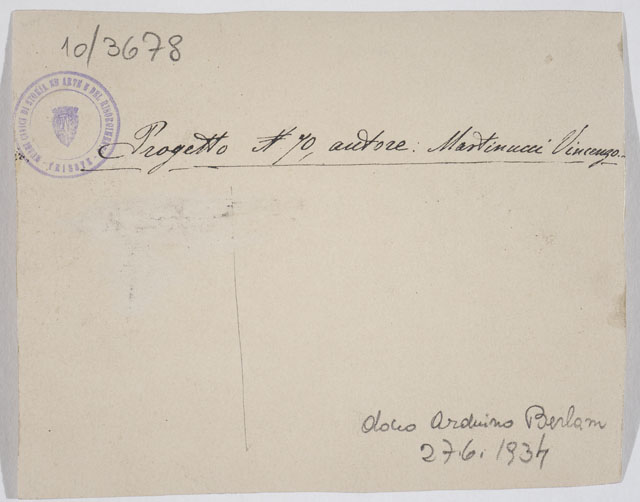 10/3678
MUSEI CIVICI DI STORIA ED ARTE E DEL RISORGIMENTO
TRIESTE
Progetto N 70, autore: Martinucci Vincenzo.
dono Arduino Berlam
27.6.1934